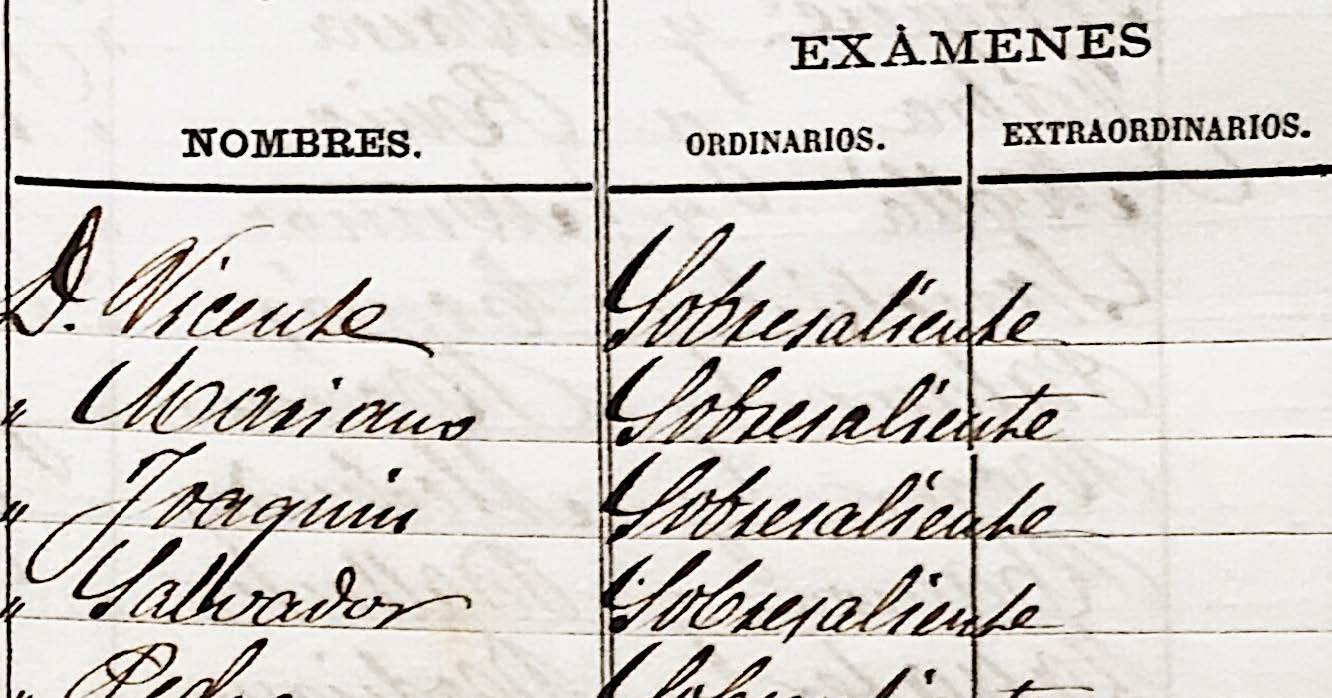 EXÀMENES
NOMBRES. ORDINARIOS. EXTRAORDINARIOS.
D. Vicente Sobresaliente
" Mariano Sobresaliente
" Joaquin Sobresaliente
" Salvador Sobresaliente
" Pedro Sobresaliente